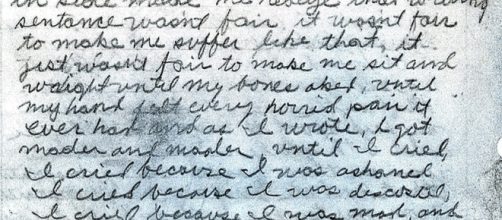 made me
sentame wasnt fair it wasnt fair
to make me suffer like that, it
just wasnt fair to make me sit and
waight until my bones aked, until
my hand felt every horrid pan it
ever had and as I wrote, I got
mader and mader until I cried,
I cried because I was ashamed
I cried because I was descostid,
I cried because I was mad, and